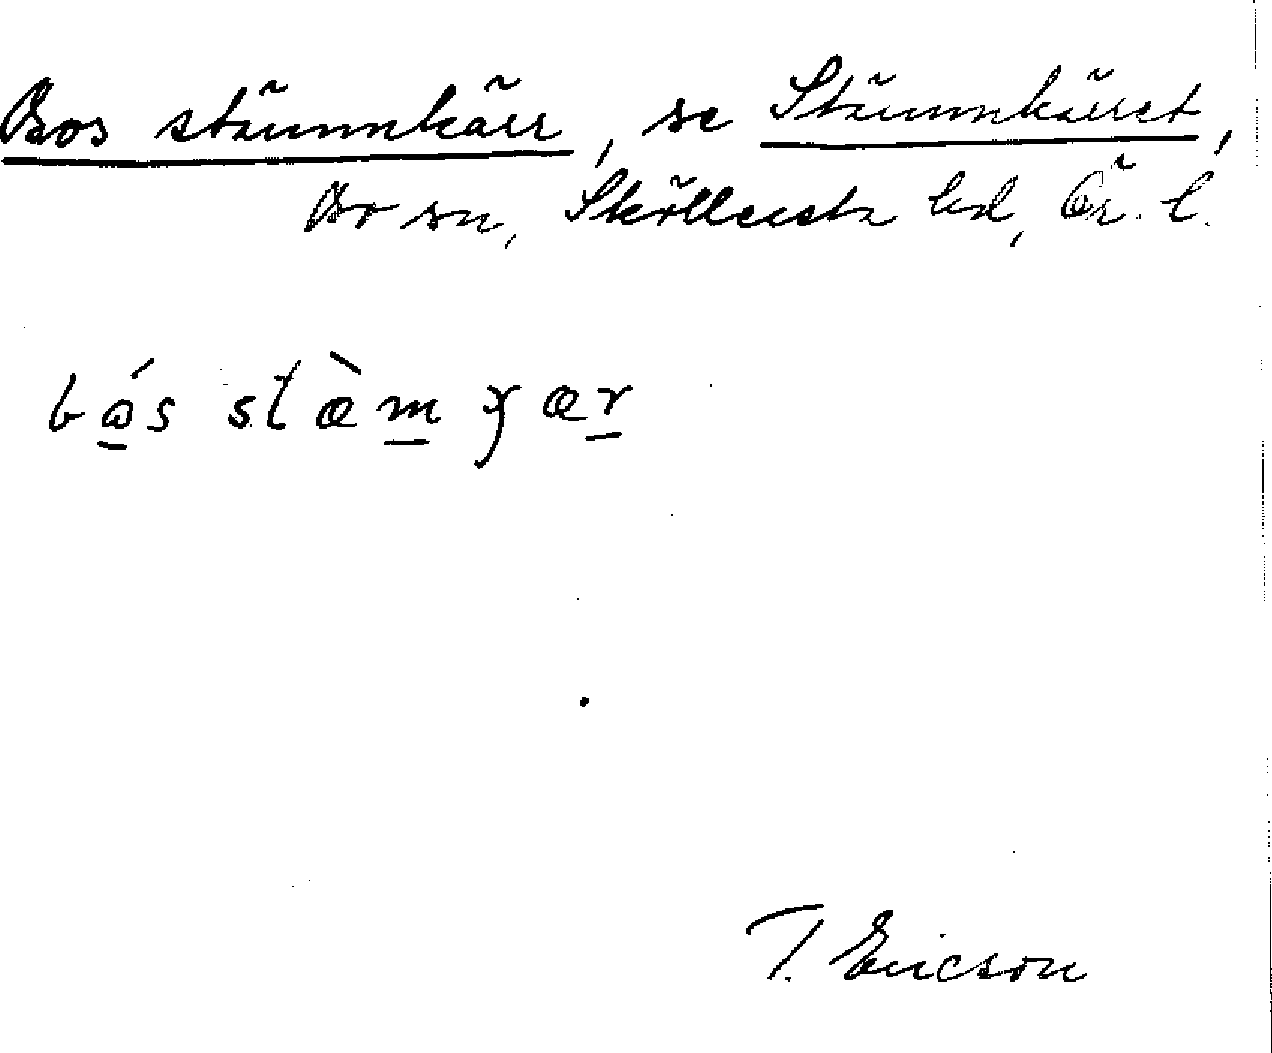 Bos stämmkärr, se Stämmkärret,
Bo sn, Sköllersta hd, Ör. l.
bǫ́s stæ̀m̱ ӽæṟ
T. Ericson